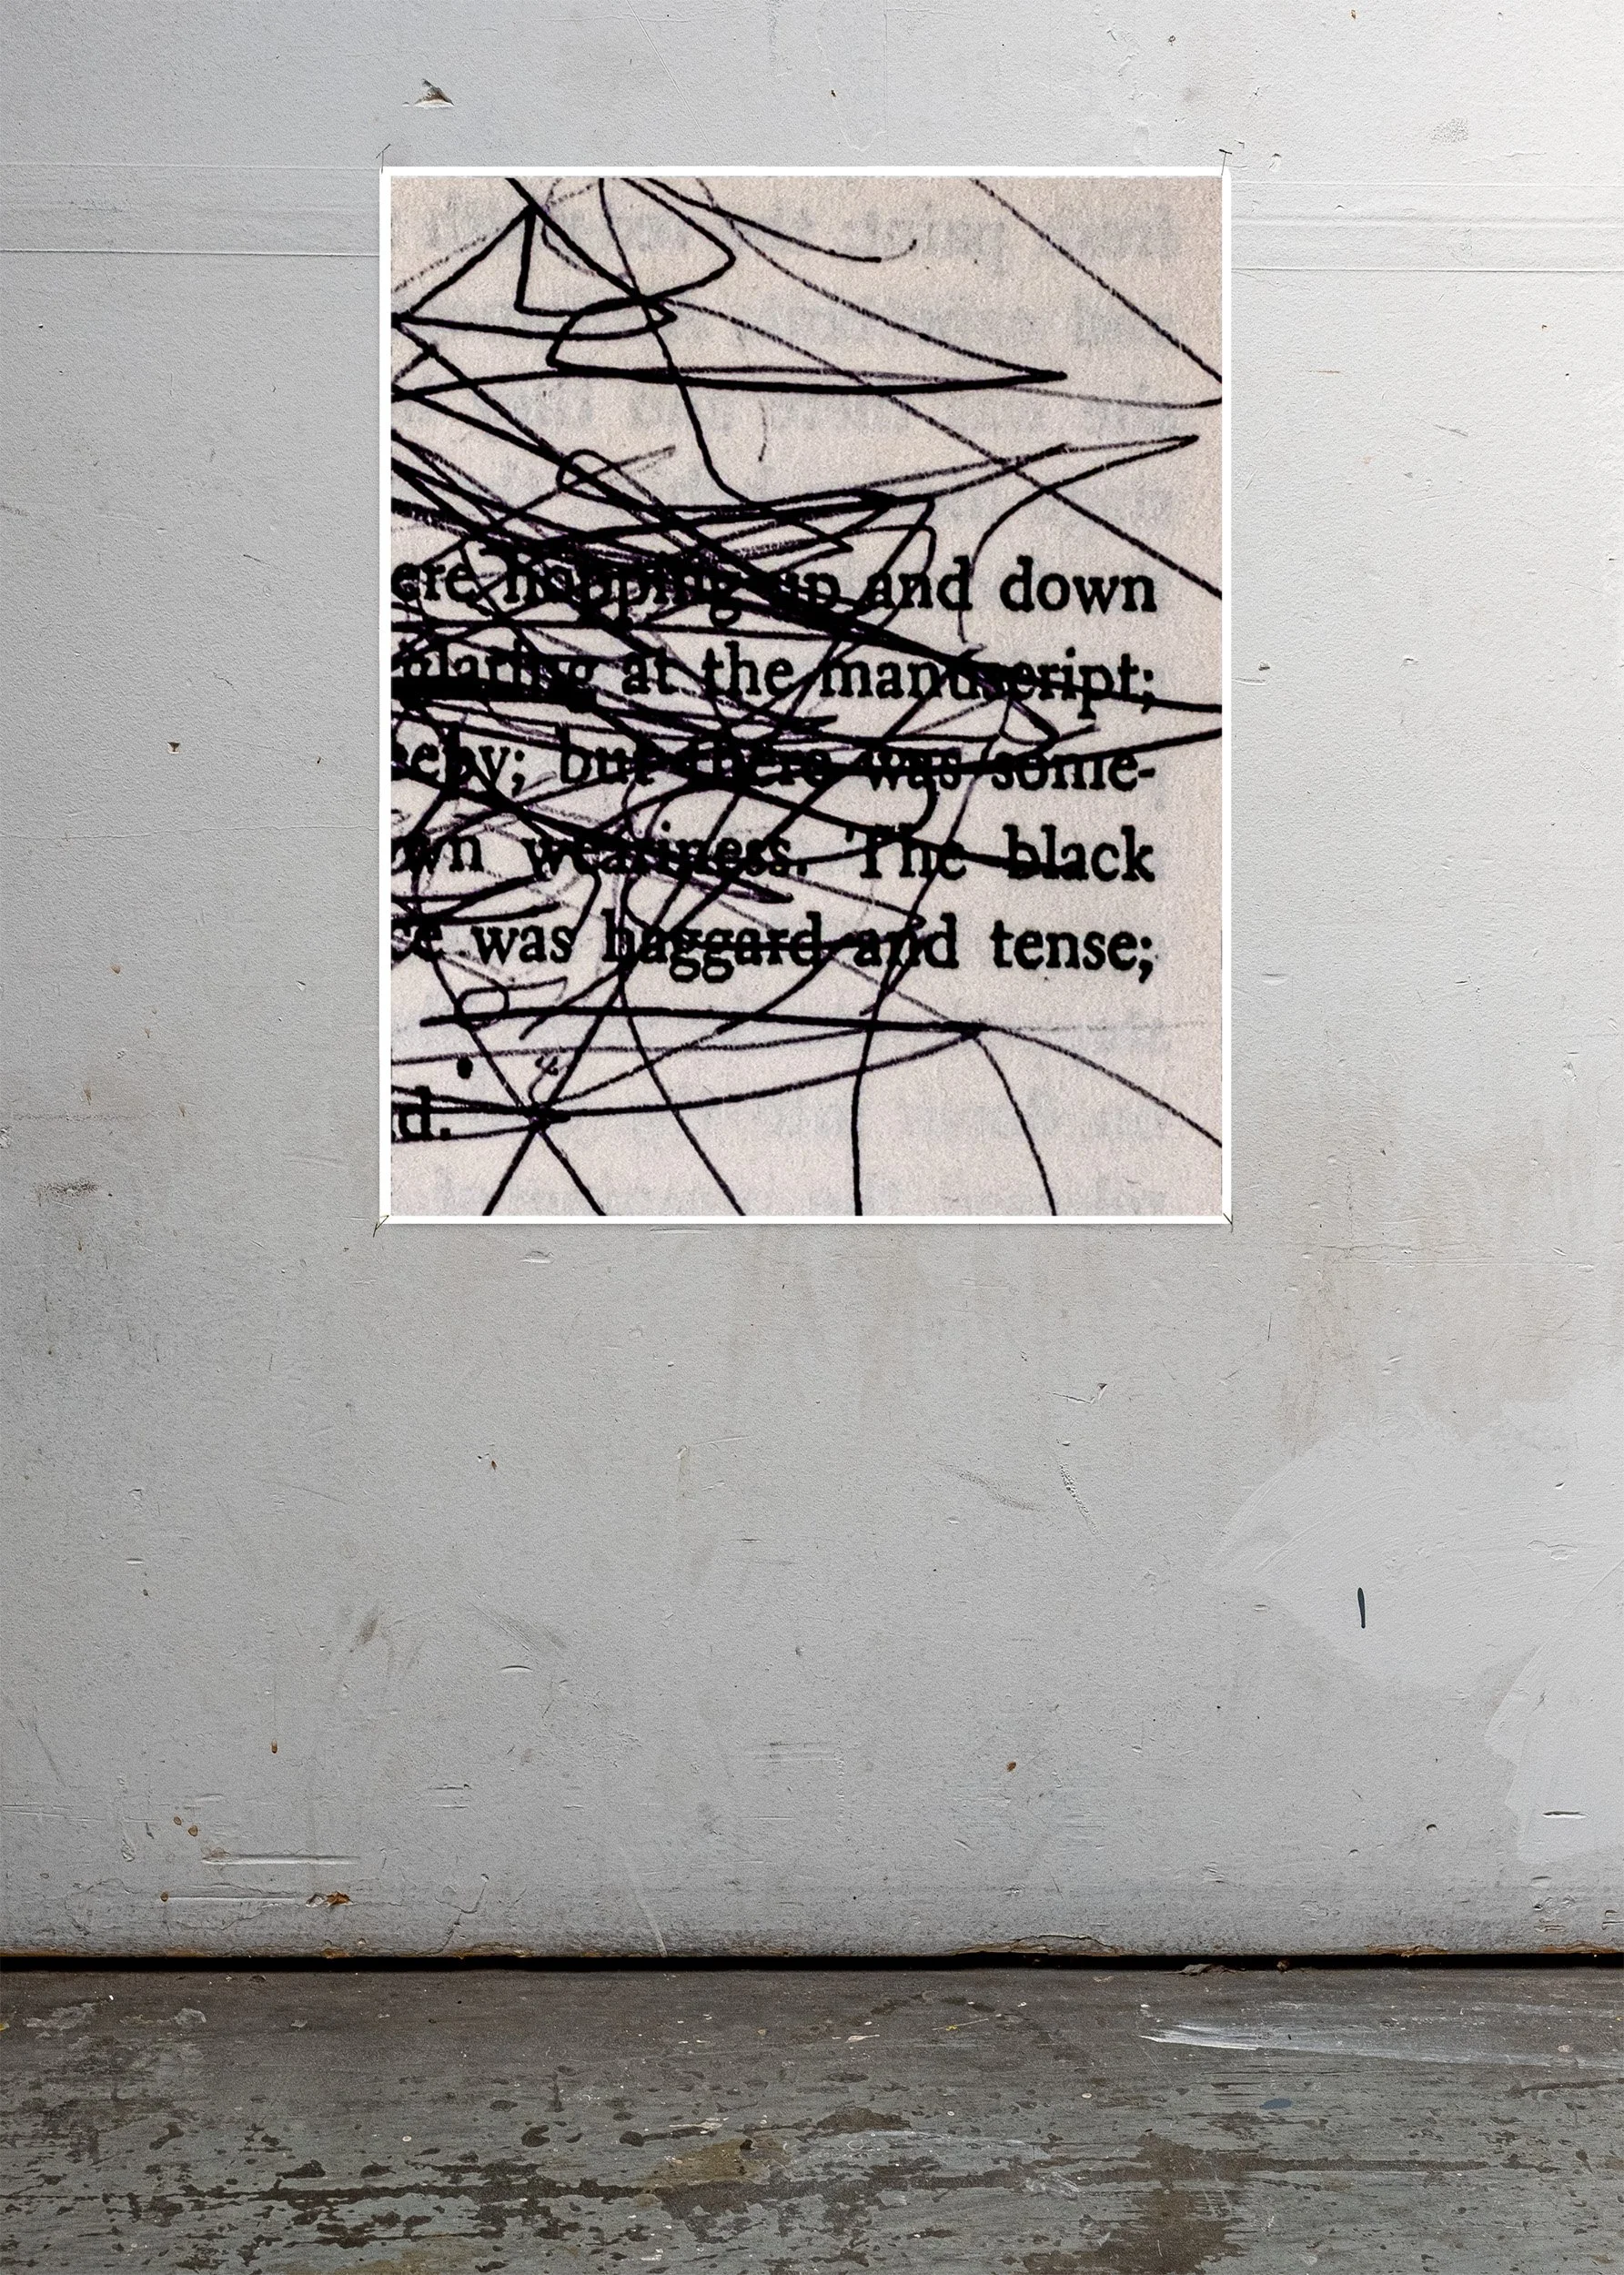 ere hopping up and down
at the manuscript;
eeby; but there was some-
wn weariness. The black
ce was haggard and tense;
d.